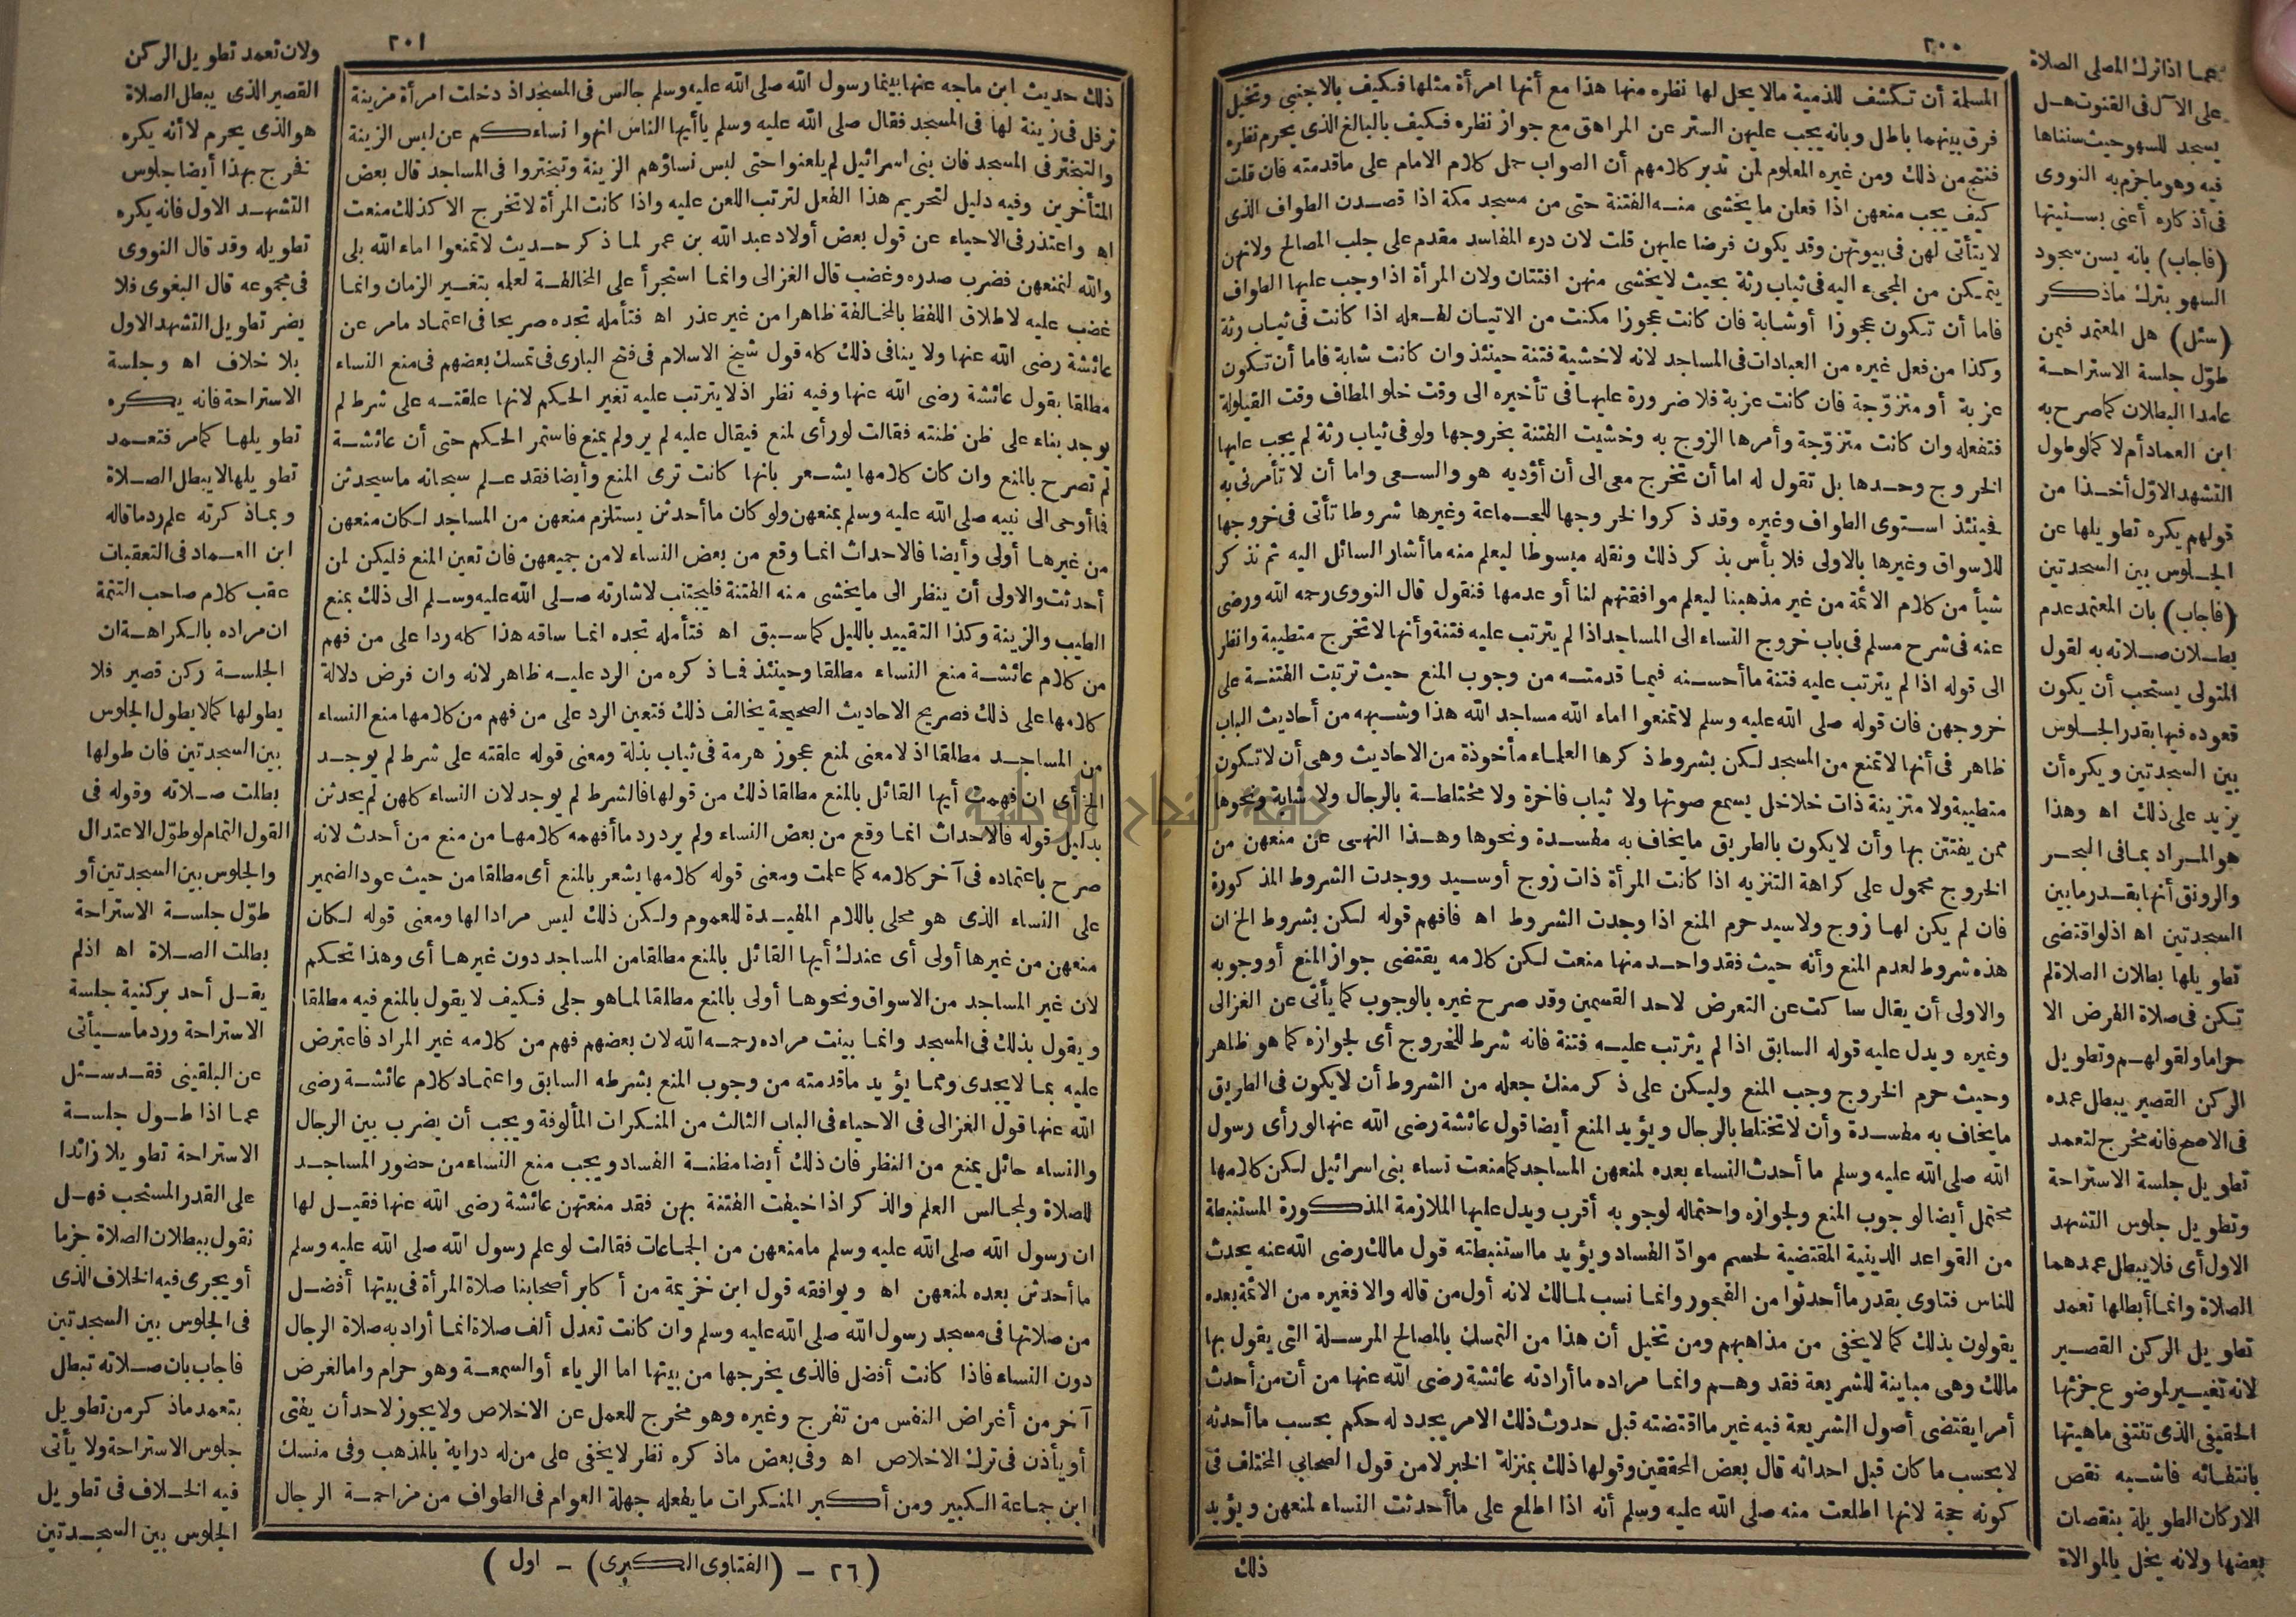 ٢٠٠
المسلمة أن تكشف للذمية مالا يحل لها نظره منها هذا مع أنها امرأة مثلها فكيف بالاجنبي وتخيل
فرق بينهما باطل وبانه يجب عليهن الستر عن المراهق مع جواز نظره فكيف بالبالغ الذى يحرم نظره
فنتج من ذلك ومن غيره المعلوم لمن تدبر كلامهم أن الصواب حمل كلام الامام على ماقدمته فان قلت
كيف يجب منعهن اذا فعلن ما يخشى منه الفتنة حتى من مسجد مكة اذا قصدن الطواف الذى
لا يتأتى لهن فى بيوتهن وقد يكون فرضا عليهن قلت لان درء المفاسد مقدم على جلب المصالح ولانهن
يتمكن من المجىء اليه فى ثياب رثة بحيث لا يخشى منهن افتتان ولان المرأة اذا وجب عليها الطواف
فاما أن تكون عجوزا أو شابة فان كانت عجوزا مكنت من الاتيان لفعله اذا كانت فى ثياب رثة
وكذا من فعل غيره من العبادات فى المساجد لانه لاخشية فتنة حينئذ وان كانت شابة فاما أن تكون
عزبة أو متزوّجة فان كانت عزبة فلا ضرورة عليها فى تأخيره الى وقت خلو المطاف وقت القيلولة
فتفعله وان كانت متزوّجة وأمرها الزوج به وخشيت الفتنة بخروجها ولو فى ثياب رثة لم يجب عليها
الخروج وحدها بل تقول له اما أن تخرج معى الى أن أؤديه هو والسعى واما أن لا تأمرنى به
فحينئذ استوى الطواف وغيره وقد ذكروا لخروجها للجماعة وغيرها شروطا تأتى فى خروجها
للاسواق وغيرها بالاولى فلا بأس بذكر ذلك ونقله مبسوطا ليعلم منه ما أشار السائل اليه ثم نذكر
شيأ من كلام الائمة من غير مذهبنا ليعلم موافقتهم لنا أو عدمها فنقول قال النووى رحمه الله ورضى
عنه فى شرح مسلم فى باب خروج النساء الى المساجد اذا لم يترتب عليه فتنة وأنها لا تخرج متطيبة وانظر
الى قوله اذا لم يترتب عليه فتنة ما أحسنه فيما قدمته من وجوب المنع حيث ترتبت الفتنة على
خروجهن فان قوله صلى الله عليه وسلم لا تمنعوا اماء الله مساجد الله هذا وشبهه من أحاديث الباب
ظاهر فى أنها لا تمنع من المسجد لكن بشروط ذكرها العلماء مأخوذة من الاحاديث وهى أن لا تكون
متطيبة ولا متزينة ذات خلاخل يسمع صوتها ولا ثياب فاخرة ولا مختلطة بالرجال ولا شابة ونحوها
ممن يفتتن بها وأن لا يكون بالطريق مايخاف به مفسدة ونحوها وهذا النهى عن منعهن من
الخروج محمول على كراهة التنزيه اذا كانت المرأة ذات زوج أو سيد ووجدت الشروط المذكورة
فان لم يكن لها زوج ولا سيد حرم المنع اذا وجدت الشروط اه فافهم قوله لكن بشروط الخ ان
هذه شروط لعدم المنع وأنه حيث فقد واحد منها منعت لكن كلامه يقتضى جواز المنع أو وجوبه
والاولى أن يقال ساكت عن التعرض لاحد القسمين وقد صرح غيره بالوجوب كما يأتى عن الغزالى
وغيره ويدل عليه قوله السابق اذا لم يترتب عليه فتنة فانه شرط للخروج أى لجوازه كما هو ظاهر
وحيث حرم الخروج وجب المنع وليكن على ذكر منك جعله من الشروط أن لا يكون فى الطريق
مايخاف به مفسدة وأن لا تختلط بالرجال ويؤيد المنع أيضا قول عائشة رضى الله عنها لو رأى رسول
الله صلى الله عليه وسلم ما أحدث النساء بعده لمنعهن المساجد كما منعت نساء بنى اسرائيل لكن كلامها
محتمل أيضا لوجوب المنع ولجوازه واحتماله لوجوبه أقرب ويدل عليها الملازمة المذكورة المستنبطة
من القواعد الدينية المقتضية لحسم موادّ الفساد ويؤيد ما استنبطته قول مالك رضى الله عنه يحدث
للناس فتاوى بقدر ما أحدثوا من الفجور وانما نسب لمالك لانه أول من قاله والا فغيره من الائمة بعده
يقولون بذلك كما لايخفى من مذاهبهم ومن تخيل أن هذا من التمسك بالمصالح المرسلة التى يقول بها
مالك وهى مباينة للشريعة فقد وهم وانما مراده ما أرادته عائشة رضى الله عنها من أن من أحدث
أمرا يقتضى أصول الشريعة فيه غير ما اقتضته قبل حدوث ذلك الامر يجدد له حكم بحسب ما أحدثه
لا بحسب ما كان قبل احداثه قال بعض المحققين وقولها ذلك بمنزلة الخبر لا من قول الصحابى المختلف فى
كونه حجة لانها اطلعت منه صلى الله عليه وسلم أنه اذا اطلع على ما أحدثت النساء لمنعهن ويؤيد
ذلك
عما اذا ترك المصلى الصلاة
على الآل فى القنوت هل
يسجد للسهو حيث سنناها
فيه وهو ما جزم به النووى
فى أذكاره أعنى بسنيتها
(فاجاب) بانه يسن سجود
السهو بترك ماذكر
(سئل) هل المعتمد فيمن
طوّل جلسة الاستراحة
عامدا البطلان كما صرح به
ابن العماد أم لا كما لو طول
التشهد الاوّل أخذا من
قولهم يكره تطويلها عن
الجلوس بين السجدتين
(فاجاب) بان المعتمد عدم
بطلان صلاته به لقول
المتولى يستحب أن يكون
قعوده فيها بقدر الجلوس
بين السجدتين ويكره أن
يزيد على ذلك اه وهذا
هو المراد بما فى البحر
والرونق أنها بقدر مابين
السجدتين اه اذ لو اقتضى
تطويلها بطلان الصلاة لم
تكن فى صلاة الفرض الا
حراما ولقولهم وتطويل
الركن القصير يبطل عمده
فى الاصح فانه مخرج لتعمد
تطويل جلسة الاستراحة
وتطويل جلوس التشهد
الاول أى فلا يبطل عمدهما
الصلاة وانما أبطلها تعمد
تطويل الركن القصير
لانه تغيير لموضوع جزئها
الحقيقى الذى تنتفى ماهيتها
بانتفائه فاشبه نقص
الاركان الطويلة بنقصان
بعضها ولانه يخل بالموالاة
٢٠١
ذلك حديث ابن ماجه عنها بينما رسول الله صلى الله عليه وسلم جالس فى المسجد اذ دخلت امرأة مزينة
ترفل فى زينة لها فى المسجد فقال صلى الله عليه وسلم يا أيها الناس انهوا نساءكم عن لبس الزينة
والتبختر فى المسجد فان بنى اسرائيل لم يلعنوا حتى لبس نساؤهم الزينة وتبختروا فى المساجد قال بعض
المتأخرين وفيه دليل لتحريم هذا الفعل لترتب اللعن عليه واذا كانت المرأة لا تخرج الا كذلك منعت
اه واعتذر فى الاحياء عن قول بعض أولاد عبد الله بن عمر لما ذكر حديث لا تمنعوا اماء الله بلى
والله لنمنعهن فضرب صدره وغضب قال الغزالى وانما استجرأ على المخالفة لعلمه بتغير الزمان وانما
غضب عليه لاطلاق اللفظ بالمخالفة ظاهرا من غير عذر اه فتأمله تجده صريحا فى اعتماد مامر عن
عائشة رضى الله عنها ولا ينافى ذلك كله قول شيخ الاسلام فى فتح البارى فى تمسك بعضهم فى منع النساء
مطلقا بقول عائشة رضى الله عنها وفيه نظر اذ لا يترتب عليه تغير الحكم لانها علقته على شرط لم
يوجد بناء على ظن ظنته فقالت لو رأى لمنع فيقال عليه لم ير ولم يمنع فاستمر الحكم حتى أن عائشة
لم تصرح بالمنع وان كان كلامها يشعر بانها كانت ترى المنع وأيضا فقد علم سبحانه ما سيحدثن
فما أوحى الى نبيه صلى الله عليه وسلم بمنعهن ولو كان ما أحدثن يستلزم منعهن من المساجد لكان منعهن
من غيرها أولى وأيضا فالاحداث انما وقع من بعض النساء لا من جميعهن فان تعين المنع فليكن لمن
أحدثت والاولى أن ينظر الى مايخشى منه الفتنة فليجتنب لاشارته صلى الله عليه وسلم الى ذلك بمنع
الطيب والزينة وكذا التقييد بالليل كما سبق اه فتأمله تجده انما ساقه هذا كله ردا على من فهم
من كلام عائشة منع النساء مطلقا وحينئذ فماذكره من الرد عليه ظاهر لانه وان فرض دلالة
كلامها على ذلك فصريح الاحاديث الصحيحة يخالف ذلك فتعين الرد على من فهم من كلامها منع النساء
من المساجد مطلقا اذ لا معنى لمنع عجوز هرمة فى ثياب بذلة ومعنى قوله علقته على شرط لم يوجد
الخ أى ان فهمت أيها القائل بالمنع مطلقا ذلك من قولها فالشرط لم يوجد لان النساء كلهن لم يحدثن
بدليل قوله فالاحداث انما وقع من بعض النساء ولم يرد رد ما أفهمه كلامها من منع من أحدث لانه
صرح باعتماده فى آخر كلامه كما علمت ومعنى قوله كلامها يشعر بالمنع أى مطلقا من حيث عود الضمير
على النساء الذى هو محلى باللام المفيدة للعموم ولكن ذلك ليس مرادا لها ومعنى قوله لكان
منعهن من غيرها أولى أى عندك أيها القائل بالمنع مطلقا من المساجد دون غيرها أى وهذا تحكم
لان غير المساجد من الاسواق ونحوها أولى بالمنع مطلقا لما هو جلى فكيف لا يقول بالمنع فيه مطلقا
ويقول بذلك فى المسجد وانما بينت مراده رحمه الله لان بعضهم فهم من كلامه غير المراد فاعترض
عليه بما لا يجدى ومما يؤيد ماقدمته من وجوب المنع بشرطه السابق واعتماد كلام عائشة رضى
الله عنها قول الغزالى فى الاحياء فى الباب الثالث من المنكرات المألوفة ويجب أن يضرب بين الرجال
والنساء حائل يمنع من النظر فان ذلك أيضا مظنة الفساد ويجب منع النساء من حضور المساجد
للصلاة ولمجالس العلم والذكر اذا خيفت الفتنة بهن فقد منعتهن عائشة رضى الله عنها فقيل لها
ان رسول الله صلى الله عليه وسلم مامنعهن من الجماعات فقالت لو علم رسول الله صلى الله عليه وسلم
ما أحدثن بعده لمنعهن اه ويوافقه قول ابن خزيمة من أكابر أصحابنا صلاة المرأة فى بيتها أفضل
من صلاتها فى مسجد رسول الله صلى الله عليه وسلم وان كانت تعدل ألف صلاة انما أراد به صلاة الرجال
دون النساء فاذا كانت أفضل فالذى يخرجها من بيتها اما الرياء أو السمعة وهو حرام واما لغرض
آخر من أغراض النفس من تفرج وغيره وهو مخرج للعمل عن الاخلاص ولا يجوز لاحد أن يفتى
أو يأذن فى ترك الاخلاص اه وفى بعض ماذكره نظر لا يخفى على من له دراية بالمذهب وفى منسك
ابن جماعة الكبير ومن أكبر المنكرات مايفعله جهلة العوام فى الطواف من مزاحمة الرجال
(٢٦ - (الفتاوى الكبرى) - اول)
ولان تعمد تطويل الركن
القصير الذى يبطل الصلاة
هو الذى يحرم لا أنه يكره
فخرج بهذا أيضا جلوس
التشهد الاول فانه يكره
تطويله وقد قال النووى
فى مجموعه قال البغوى فلا
يضر تطويل التشهد الاول
بلا خلاف اه وجلسة
الاستراحة فانه يكره
تطويلها كما مر فتعمد
تطويلها لا يبطل الصلاة
وبماذكرته علم رد ماقاله
ابن العماد فى التعقبات
عقب كلام صاحب التتمة
ان مراده بالكراهة ان
الجلسة ركن قصير فلا
يطولها كما لا يطول الجلوس
بين السجدتين فان طولها
بطلت صلاته وقوله فى
القول التمام لو طوّل الاعتدال
والجلوس بين السجدتين أو
طوّل جلسة الاستراحة
بطلت الصلاة اه اذ لم
يقل أحد بركنية جلسة
الاستراحة ورد ما سيأتى
عن البلقينى فقد سئل
عما اذا طول جلسة
الاستراحة تطويلا زائدا
على القدر المستحب فهل
نقول ببطلان الصلاة جزما
أو يجرى فيه الخلاف الذى
فى الجلوس بين السجدتين
فاجاب بان صلاته تبطل
بتعمد ماذكر من تطويل
جلوس الاستراحة ولا يأتى
فيه الخلاف فى تطويل
الجلوس بين السجدتين